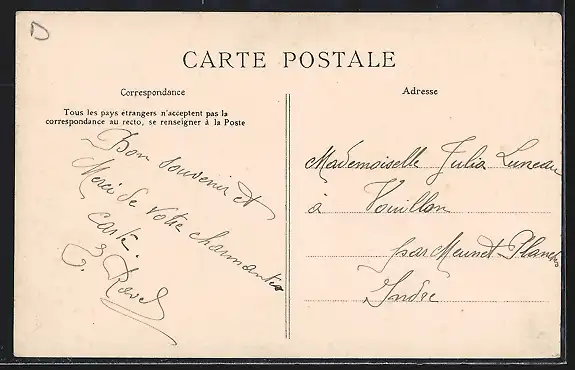 D
CARTE POSTALE
Correspondance
Tous les pays étrangers n'acceptent pas la
correspondance au recto, se renseigner à la Poste
Bon souvenir et
Merci de votre charmante
carte.
Ravel
Adresse
Mademoiselle Julia Luneau
à Vouillon
par Meunet-Planches
Indre